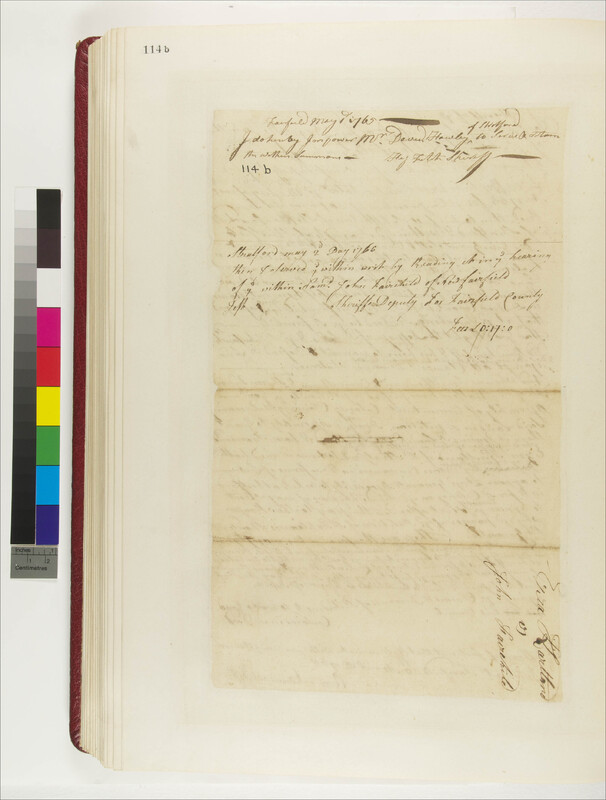 114 b
Fairfield May 1st 1765
I do hereby Impower Mr. David Hawley of Stratford to Serve & return
the within Summons
114 b
Stratford may Day 1765
then I Served ye within writ by Reading it in ye hearing
of ye within Named John Fairchild of
Test Sheriffs Deputy for Fairfield County
Fees £0:19:0
Ezra Kertland
vs
John Fairchild
Inches 1
1 2
Centimetres